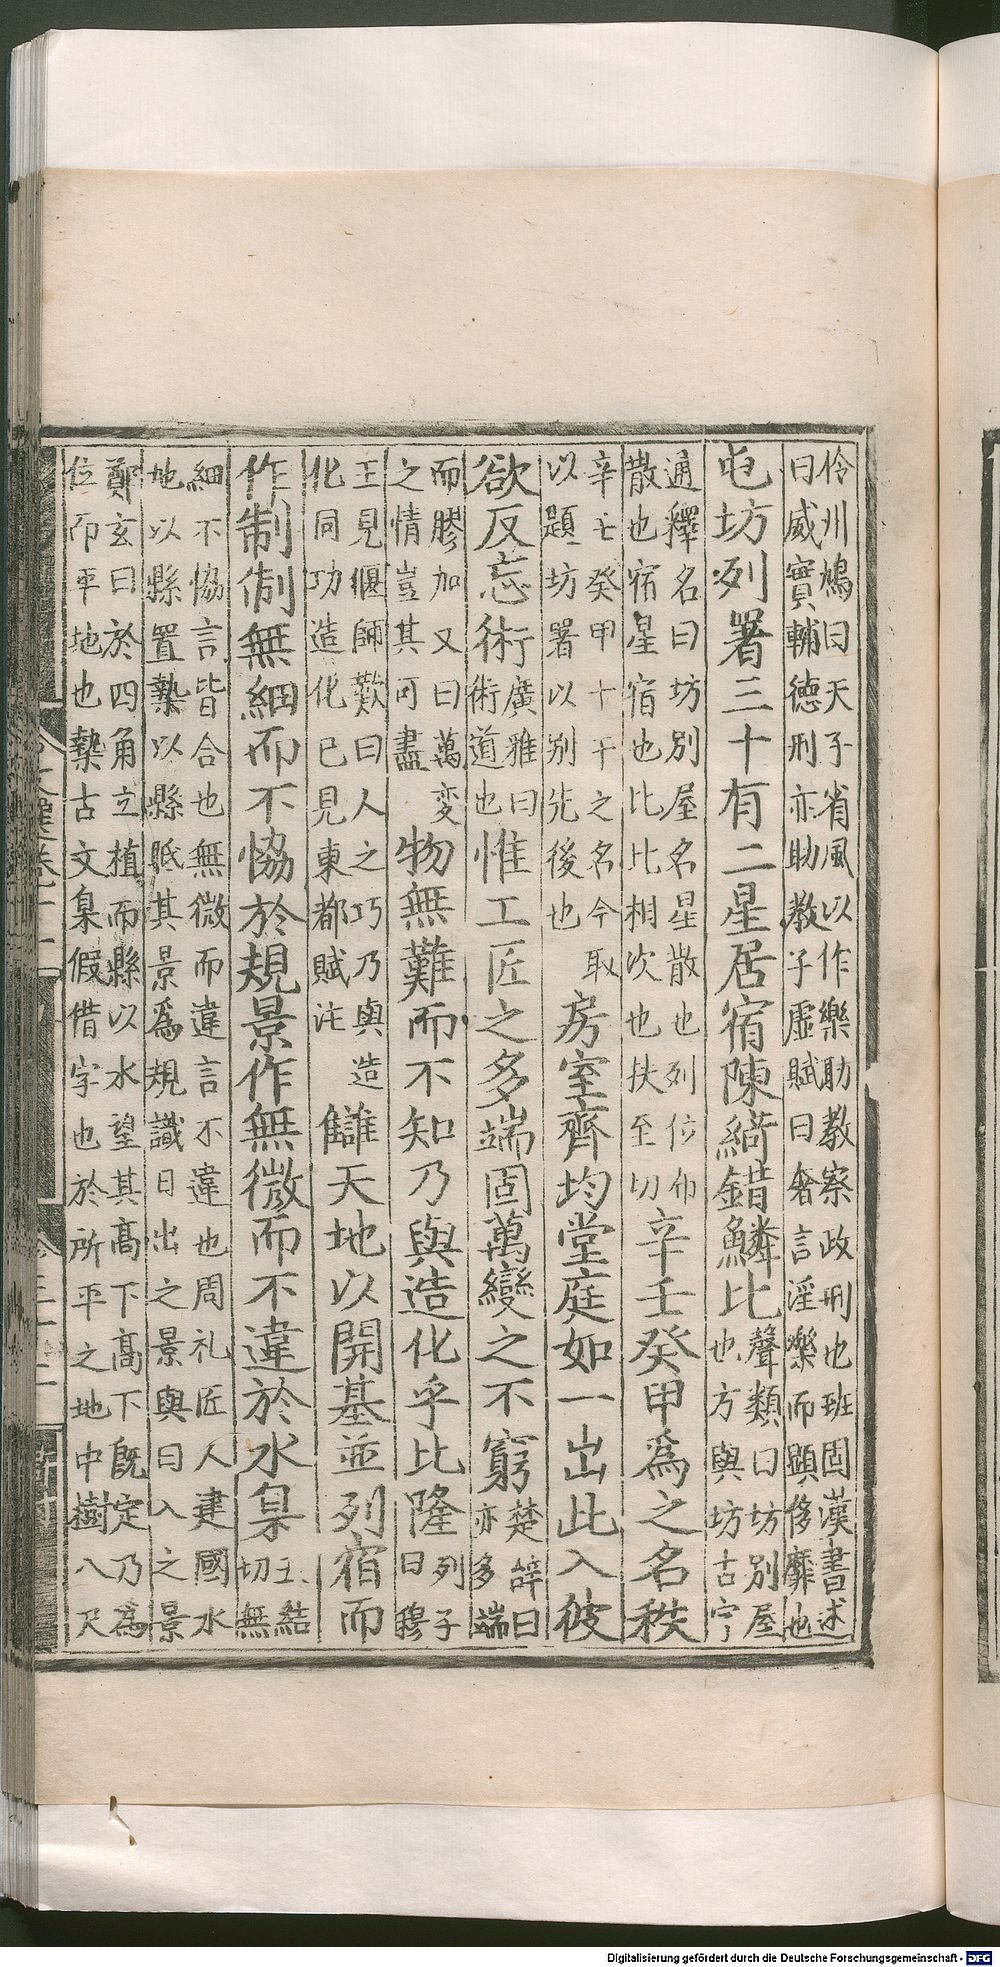 伶州鳩曰天子省風以作樂助教察政刑也班固漢書述
曰威實輔德刑亦助教子虛賦曰奢言淫樂而顯侈靡也
屯坊列署三十有二星居宿陳綺錯鱗比
聲類曰坊別屋
也方與坊古字
通釋名曰坊別屋名星散也列位布
散也宿星宿也比比相次也扶至切
辛壬癸甲為之名秩
辛壬癸甲十干之名今取
以題坊署以别先後也
房室齊均堂庭如一出此入彼
欲反忘術
廣雅曰
術道也
惟工匠之多端固萬變之不窮
楚辭曰
亦多端
而膠加又曰萬変
之情豈其可盡
物無難而不知乃與造化乎比隆
列子
曰穆
王見偃師歎曰人之巧乃與造
化同功造化已見東都賦注
讎天地以開基並列宿而
作制制無細而不恊於規景作無微而不違於水臬
五結
切無
細不恊言皆合也無微而違言不違也周礼匠人建國水
地以縣置槷以縣眡其景為規識日出之景與日入之景
鄭玄曰於四角立植而縣以水望其高下高下旣定乃為
位而平地也槷古文臬假借字也於所平之地中樹八尺
Digitalisierung gefördert durch die Deutsche Forschungsgemeinschaft - DFG